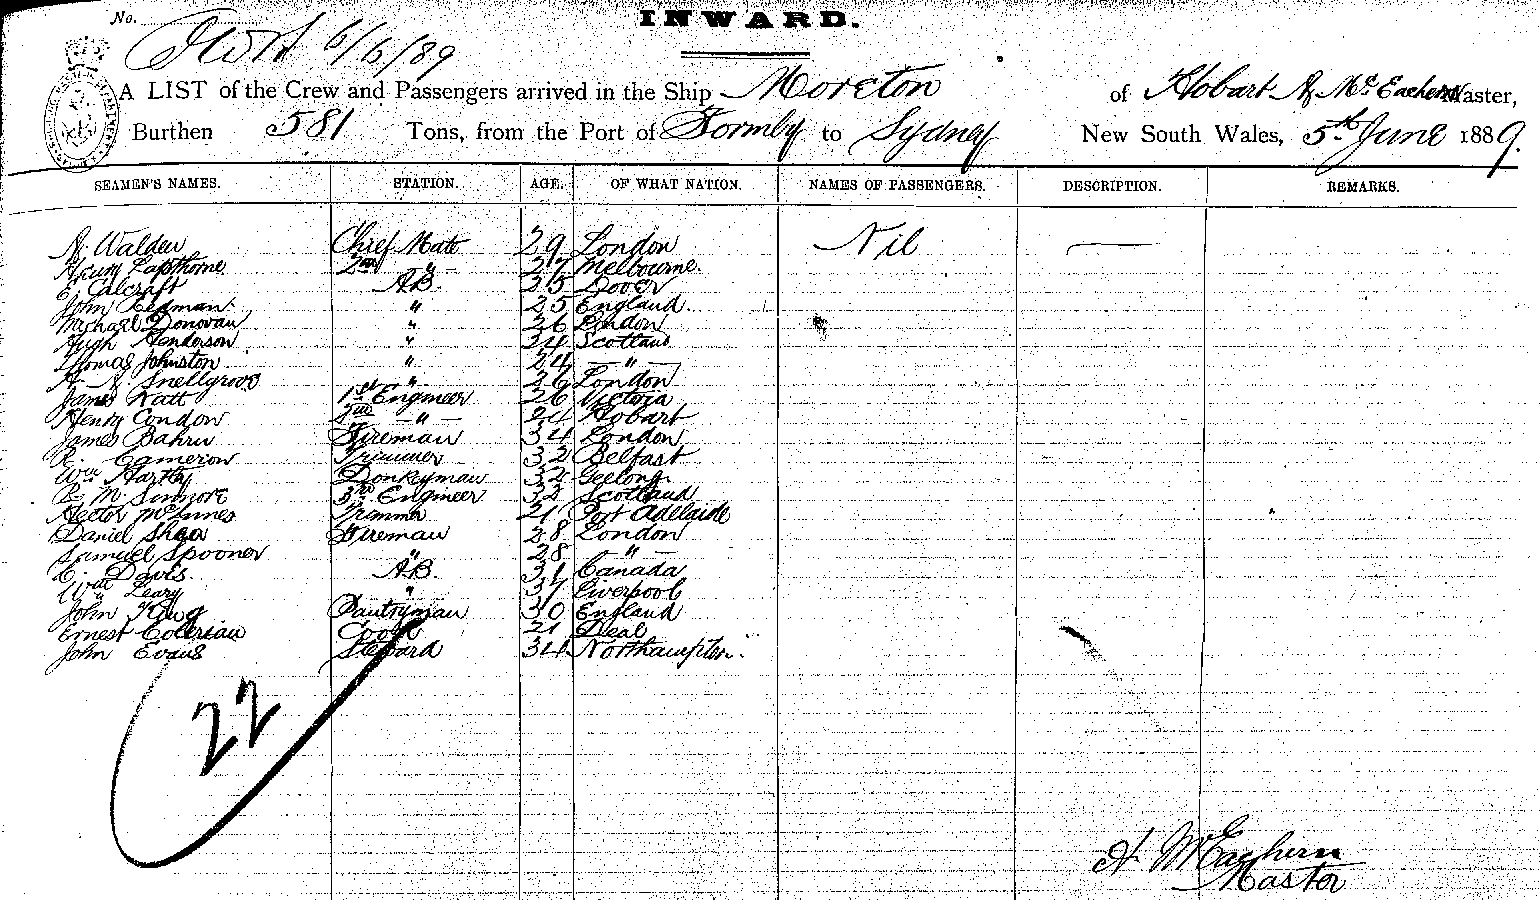 INWARD.
No.
6/6/89
A LIST of the Crew and Passengers arrived in the Ship Moreton of Hobart A McEachern Master,
Burthen 581 Tons, from the Port of Formby to Sydney New South Wales, 5th June 1889.
SEAMEN'S NAMES. STATION. AGE. OF WHAT NATION. NAMES OF PASSENGERS. DESCRIPTION. REMARKS.
Walden Chief Mate 29 London Nil —
Henry Lapthorne 2nd " 27 Melbourne.
E. Calcraft AB. 35 Dover
John Redman. " 25 England.
Michael Donovan " 26 London
Hugh Henderson " 34 Scotland
Thomas Johnston " 24 — " —
Snellgrove " 26 London
James Watt 1st Engineer 26 Victoria
Henry Condon 2nd — " — 24 Hobart
James Fireman 34 London
R. Cameron Trimmer 32 Belfast
Wm Hartley Donkeyman 32 Geelong
3rd Engineer 32 Scotland
Hector McInnes Trimmer 21 Port Adelaide
Daniel Shea Fireman 28 London
Samuel Spooner " 28 — " —
C. Davis. AB. 31 Canada
Wm Leary " 37 Liverpool
John King Pantryman 30 England
Ernest Coleman Cook 21 Deal
John Evans Steward 34 Northampton.
22
A McEachern
Master